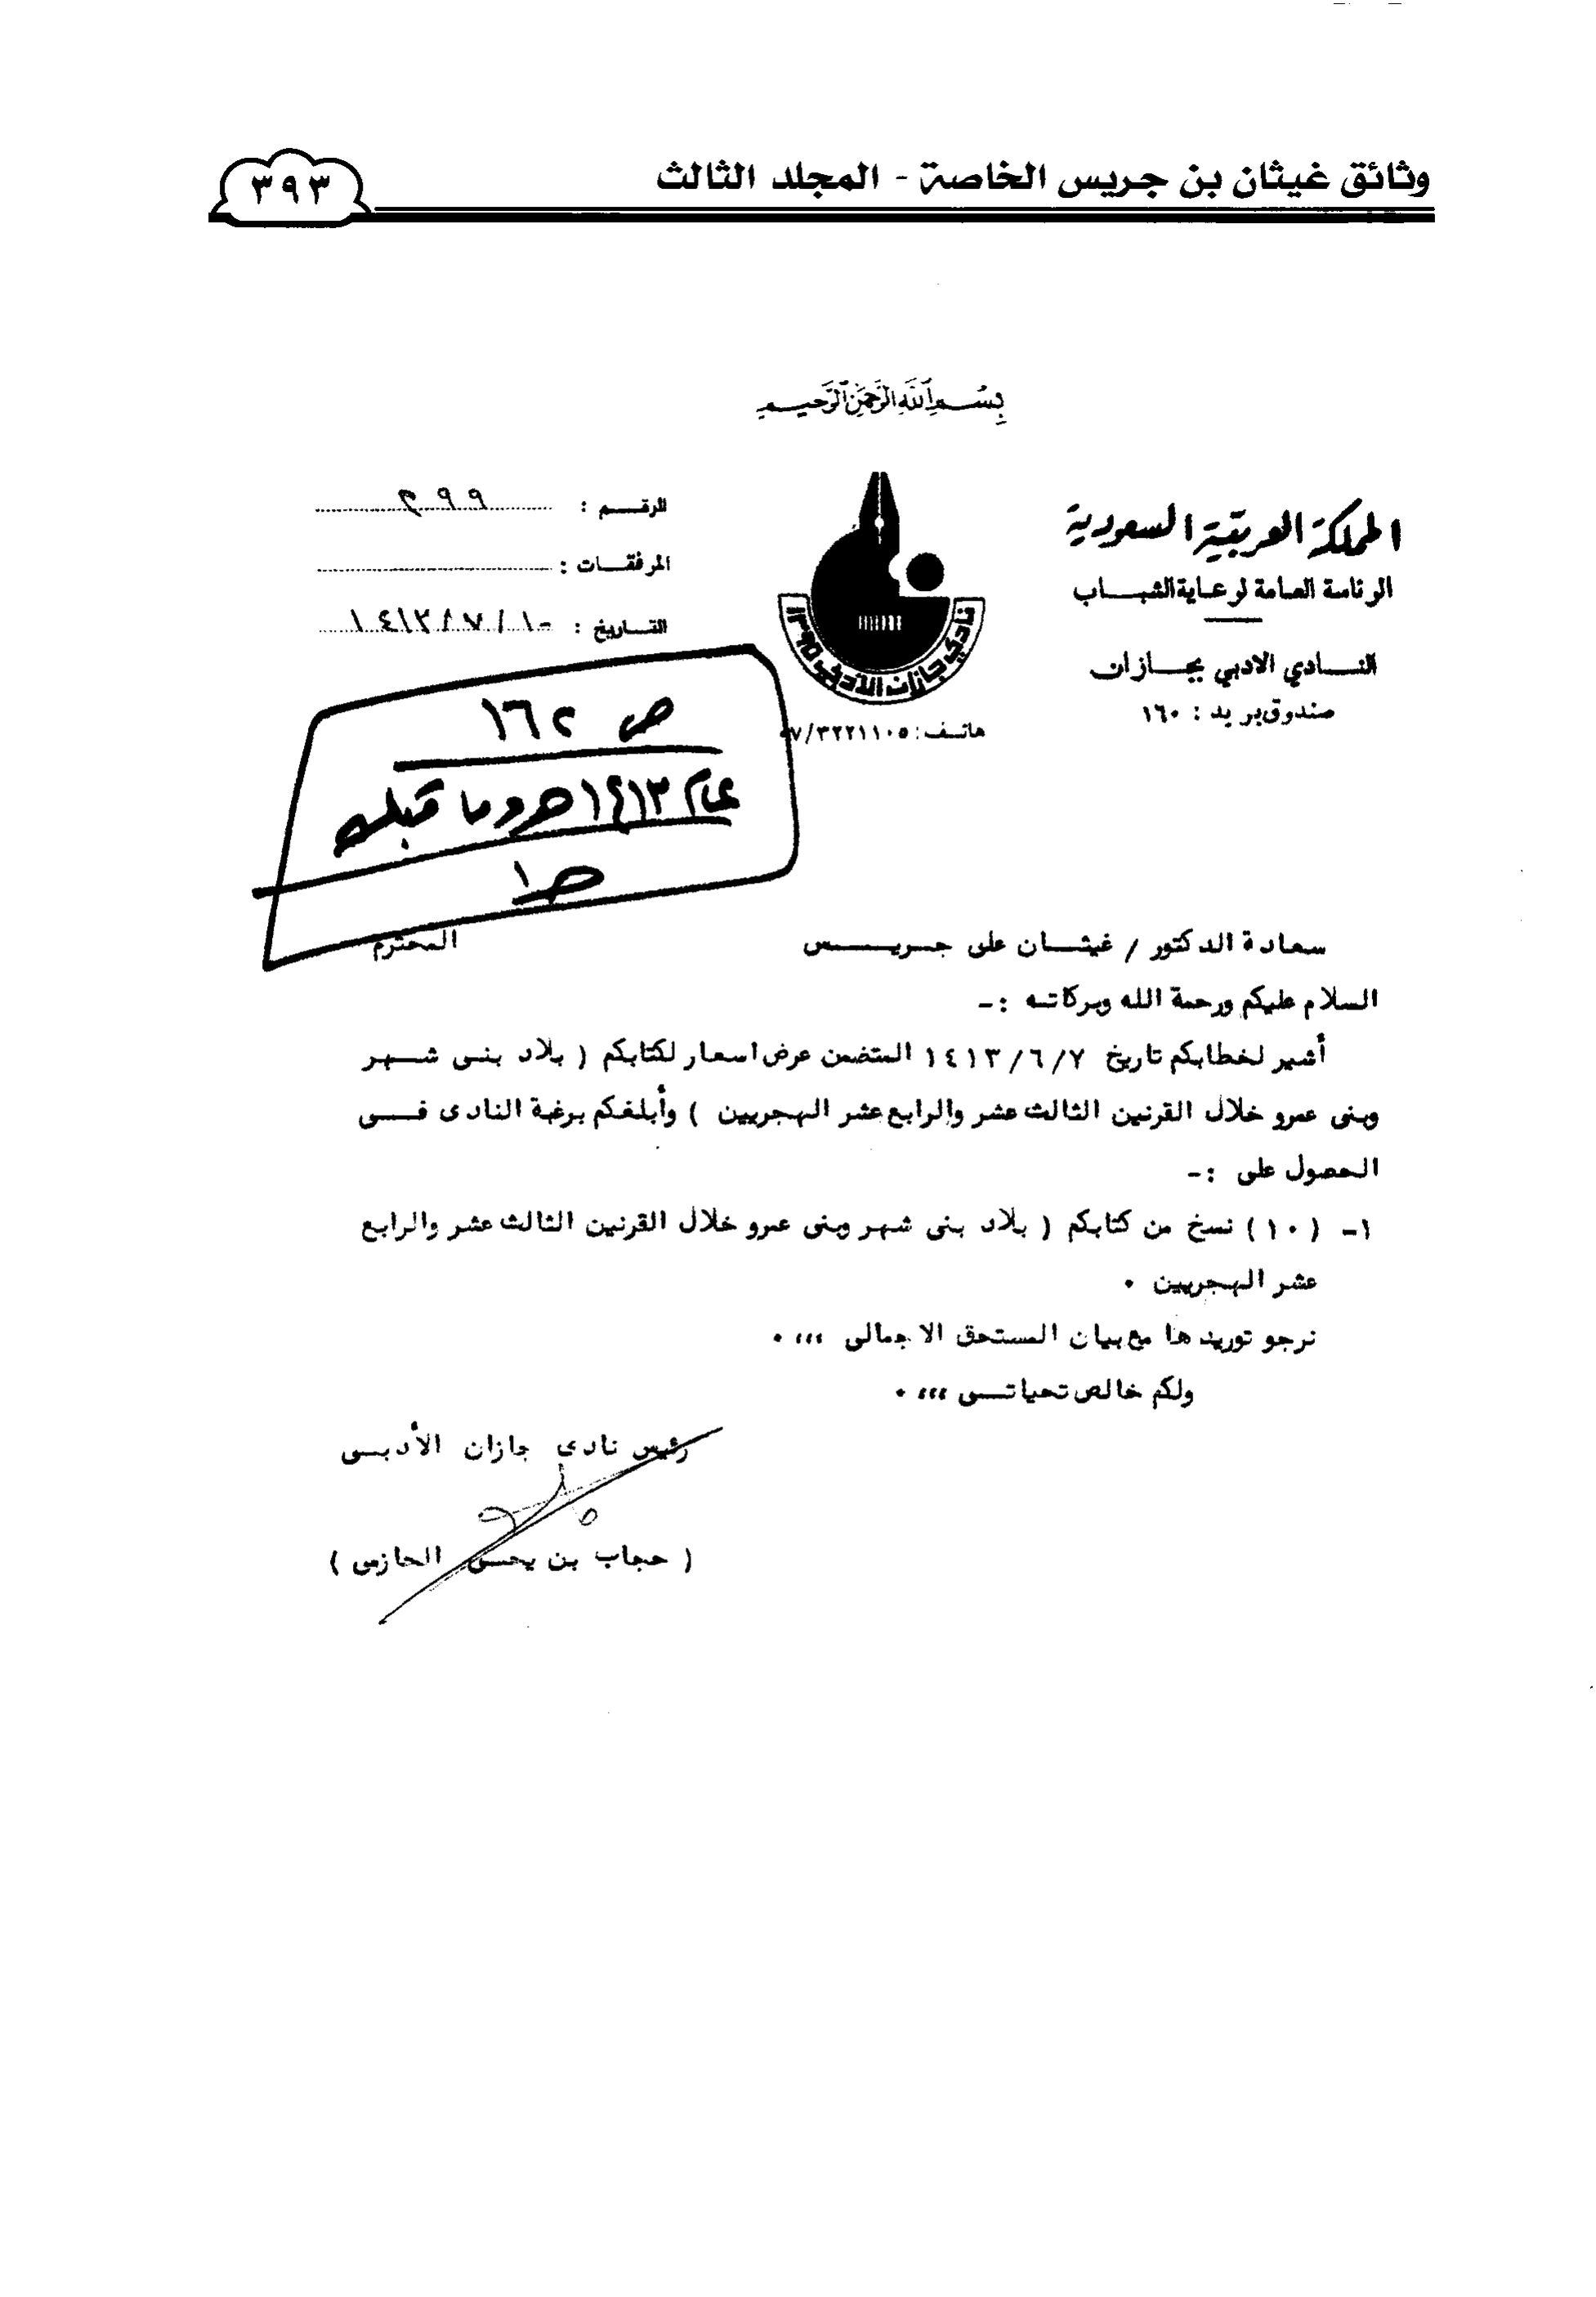 وثائق غيثان بن جريس الخاصة - المجلد الثالث
٣٩٣
بسم الله الرحمن الرحيم
المملكة العربية السعودية
الرئاسة العامة لرعاية الشباب
النادي الادبي بجازان
صندوق بريد : ١٦٠
نادي جازان الأدبي ١٣٩٥
هاتف : ٠٧/٣٢٢١١٠٥
الرقم :
المرفقات :
التاريخ : ١٠ / ٧ / ١٤١٣
ص ١٦٢
عام ١٤١٣هـ وما قبله
ص١
سعادة الدكتور / غيثان على جريس المحترم
السلام عليكم ورحمة الله وبركاته :-
أشير لخطابكم تاريخ ١٤١٣/٦/٧ المتضمن عرض اسعار لكتابكم ( بلاد بنى شهر
وبنى عمرو خلال القرنين الثالث عشر والرابع عشر الهجريين ) وأبلغكم برغبة النادى فى
الحصول على :-
١- (١٠) نسخ من كتابكم ( بلاد بنى شهر وبنى عمرو خلال القرنين الثالث عشر والرابع
عشر الهجريين ٠
نرجو توريدها مع بيان المستحق الاجمالى ،،، ٠
ولكم خالص تحياتى ،،، ٠
رئيس نادى جازان الأدبى
( حجاب بن يحيى الحازمى )